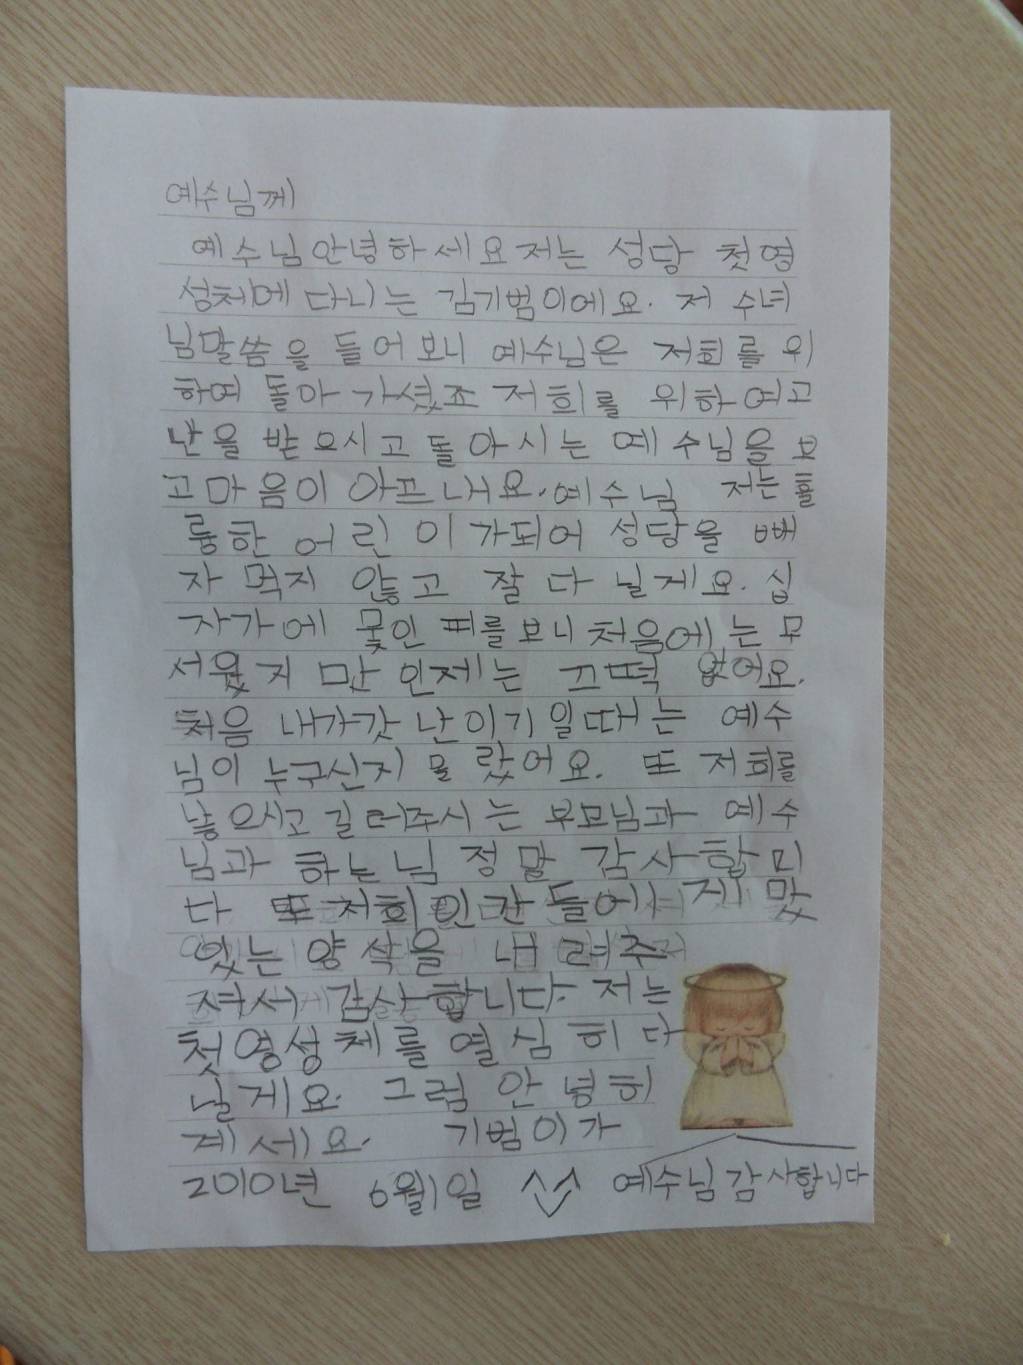 예수님께
예수님안녕하세요저는 성당 첫영
성체에 다니는 김기범이에요. 저 수녀
님말씀을 들어보니 예수님은 저희를 위
하여 돌아가셨죠 저희를 위하여고
난을 받으시고 돌아시는 예수님을 보
고마음이 아프내요. 예수님 저는훌
륭한 어린이가되어 성당을 빼
자먹지 않고 잘다닐게요. 십
자가에 뭋인 피를보니처음에는 무
서웠지만 인제는 끄떡 없어요.
처음 내가갓난이기일때는 예수
님이 누구신지 몰랐어요. 또 저희를
낳으시고길러주시는 부모님과 예수
님과 하느님 정말 감사합미
다 또저희인간들에게 맜
있는양식을 내려주
셔서 감사합니다. 저는
첫영성체를열심히다
닐게요. 그럼 안녕히
계세요. 기범이가
2010년 6월1일
예수님감사합니다